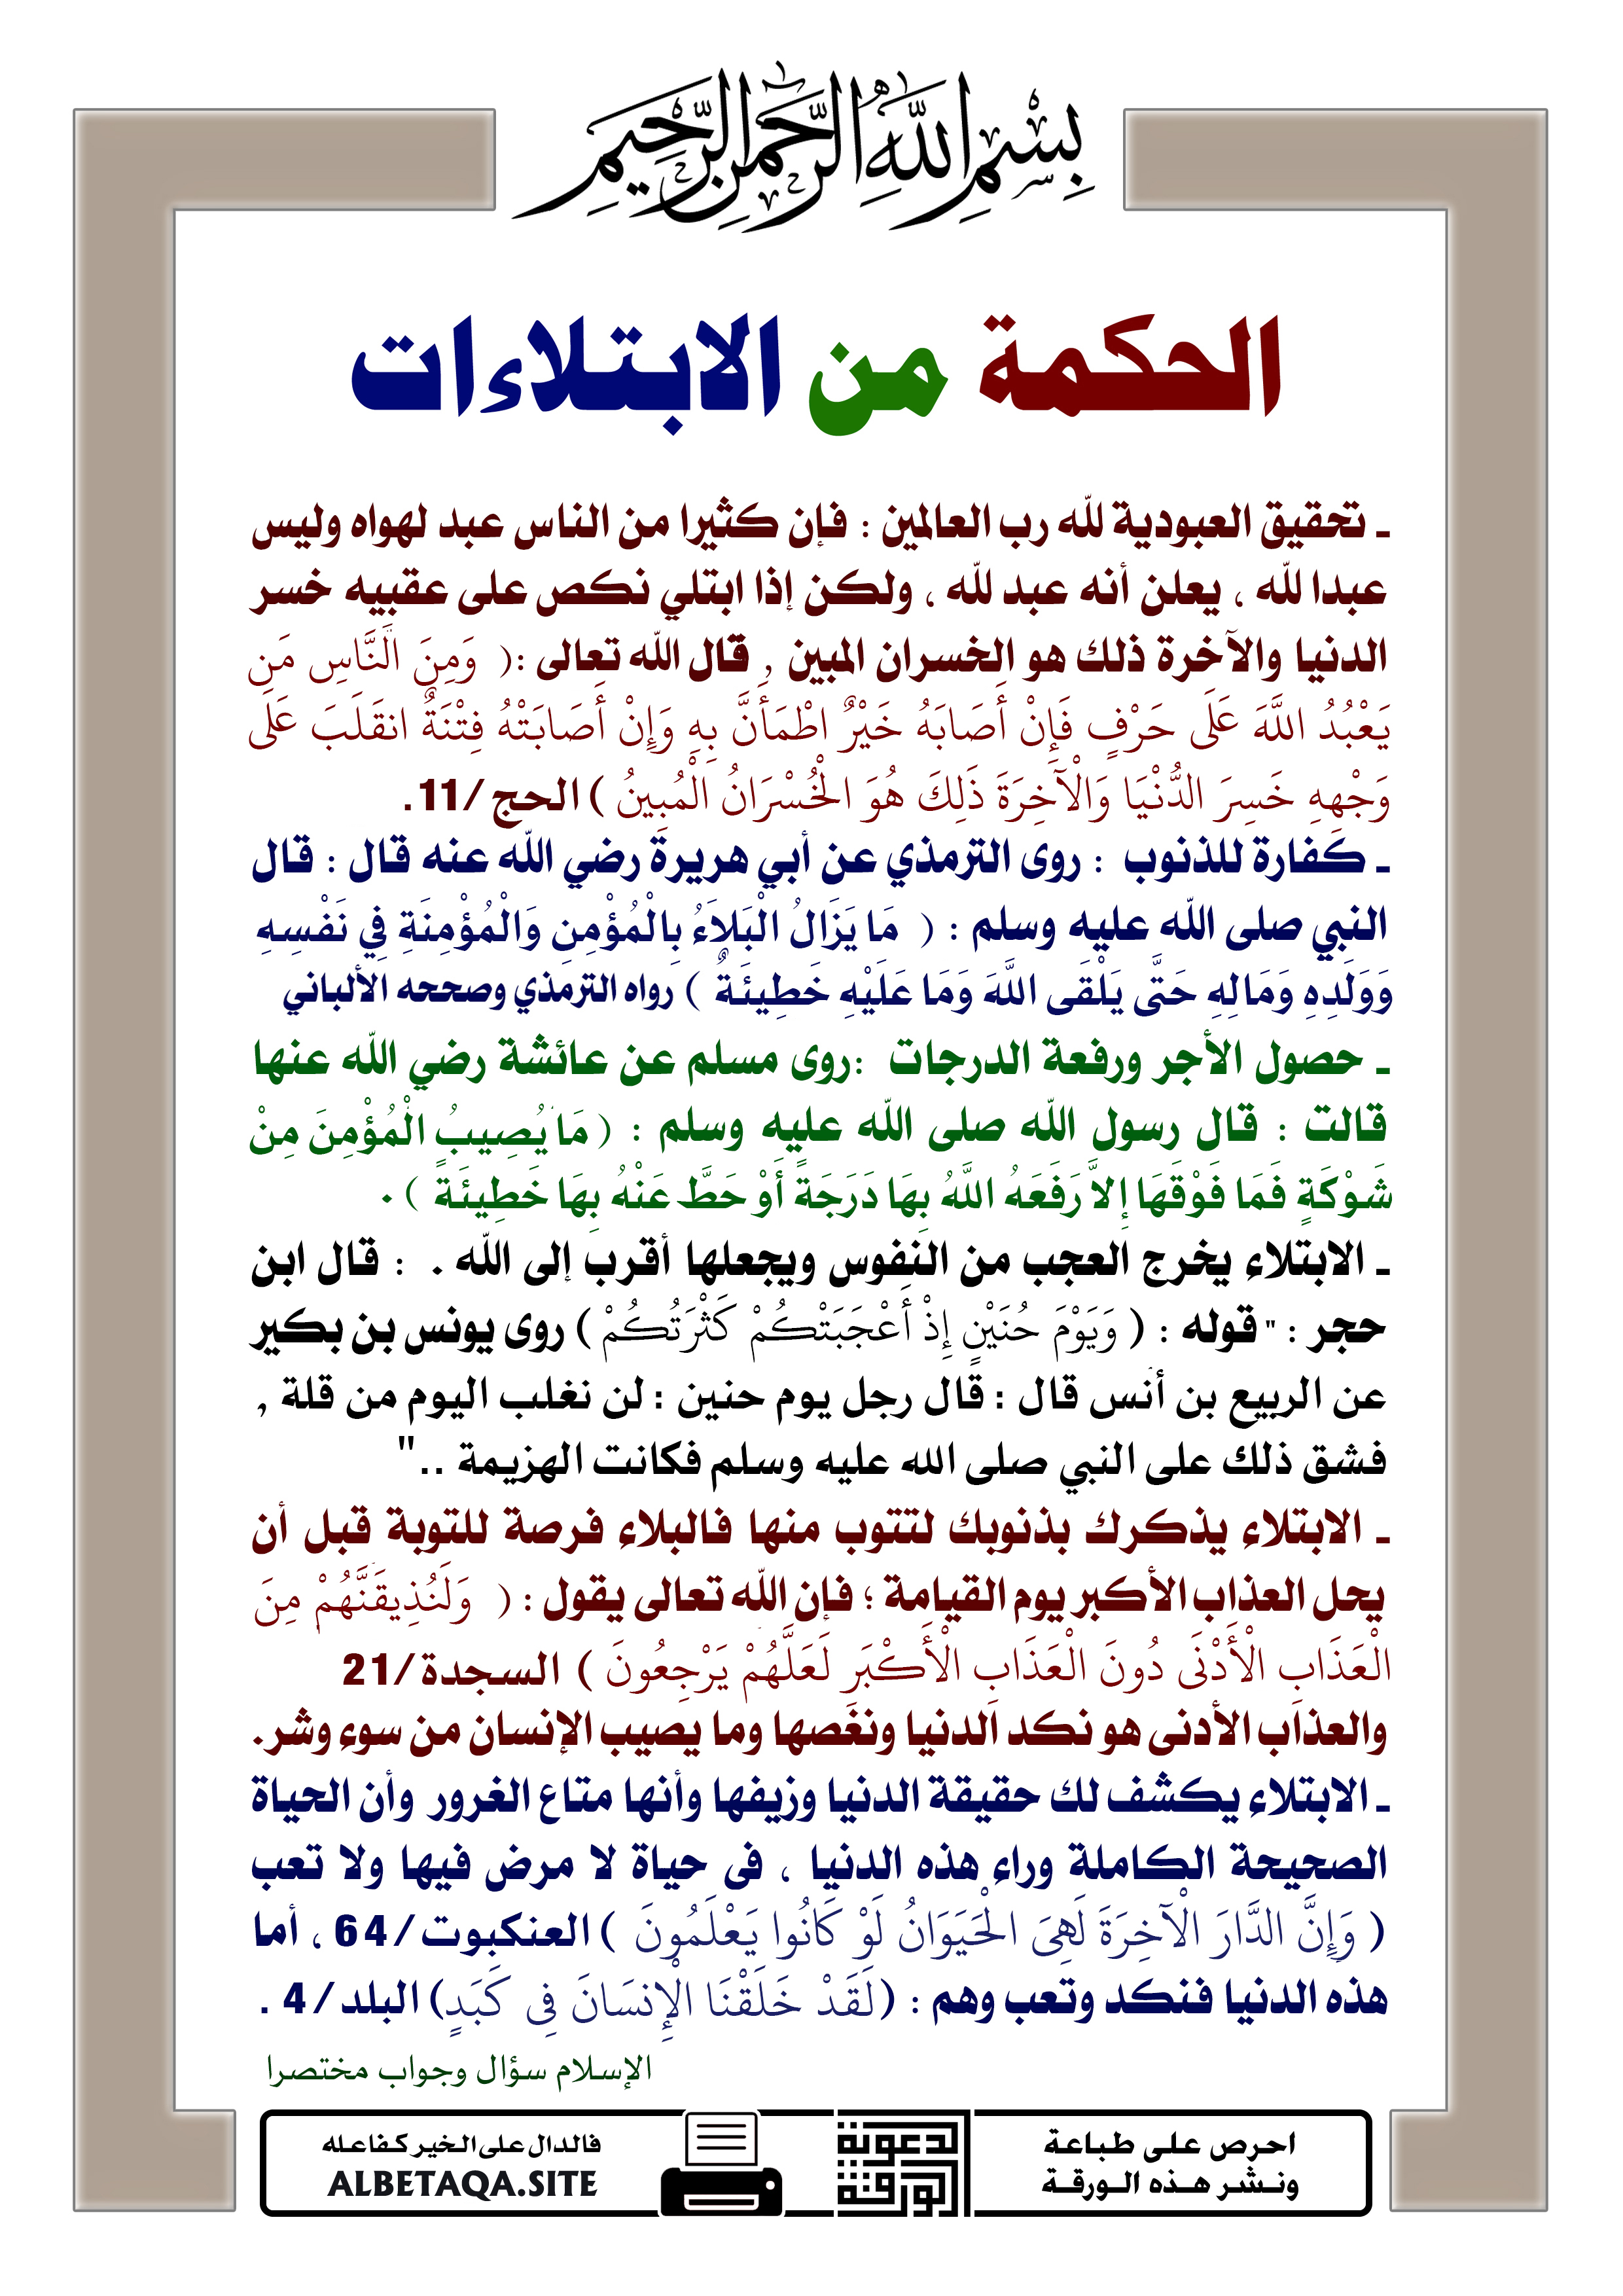 بِسْمِ اللَّهِ الرَّحْمَٰنِ الرَّحِيمِ
الحكمة من الابتلاءات
ـ تحقيق العبودية لله رب العالمين : فإن كثيرا من الناس عبد لهواه وليس
عبدا لله ، يعلن أنه عبد لله ، ولكن إذا ابتلي نكص على عقبيه خسر
الدنيا والآخرة ذلك هو الخسران المبين , قال الله تعالى :( وَمِنَ النَّاسِ مَن
يَعْبُدُ اللَّهَ عَلَى حَرْفٍ فَإِنْ أَصَابَهُ خَيْرٌ اطْمَأَنَّ بِهِ وَإِنْ أَصَابَتْهُ فِتْنَةٌ انقَلَبَ عَلَى
وَجْهِهِ خَسِرَ الدُّنْيَا وَالْآخِرَةَ ذَلِكَ هُوَ الْخُسْرَانُ الْمُبِينُ ) الحج /11.
ـ كفارة للذنوب : روى الترمذي عن أبي هريرة رضي الله عنه قال : قال
النبي صلى الله عليه وسلم : ( مَا يَزَالُ الْبَلاَءُ بِالْمُؤْمِنِ وَالْمُؤْمِنَةِ فِي نَفْسِهِ
وَوَلَدِهِ وَمَالِهِ حَتَّى يَلْقَى اللَّهَ وَمَا عَلَيْهِ خَطِيئَةٌ ) رواه الترمذي وصححه الألباني
ـ حصول الأجر ورفعة الدرجات :روى مسلم عن عائشة رضي الله عنها
قالت : قال رسول الله صلى الله عليه وسلم : ( مَا يُصِيبُ الْمُؤْمِنَ مِنْ
شَوْكَةٍ فَمَا فَوْقَهَا إِلاَّ رَفَعَهُ اللَّهُ بِهَا دَرَجَةً أَوْ حَطَّ عَنْهُ بِهَا خَطِيئَةً ) .
ـ الابتلاء يخرج العجب من النفوس ويجعلها أقرب إلى الله . : قال ابن
حجر : " قوله : ( وَيَوْمَ حُنَيْنٍ إِذْ أَعْجَبَتْكُمْ كَثْرَتُكُمْ ) روى يونس بن بكير
عن الربيع بن أنس قال : قال رجل يوم حنين : لن نغلب اليوم من قلة ,
فشق ذلك على النبي صلى الله عليه وسلم فكانت الهزيمة .."
ـ الابتلاء يذكرك بذنوبك لتتوب منها فالبلاء فرصة للتوبة قبل أن
يحل العذاب الأكبر يوم القيامة ؛ فإن الله تعالى يقول : ( وَلَنُذِيقَنَّهُمْ مِنَ
الْعَذَابِ الْأَدْنَى دُونَ الْعَذَابِ الْأَكْبَرِ لَعَلَّهُمْ يَرْجِعُونَ ) السجدة /21
والعذاب الأدنى هو نكد الدنيا ونغصها وما يصيب الإنسان من سوء وشر.
ـ الابتلاء يكشف لك حقيقة الدنيا وزيفها وأنها متاع الغرور وأن الحياة
الصحيحة الكاملة وراء هذه الدنيا ، فى حياة لا مرض فيها ولا تعب
( وَإِنَّ الدَّارَ الْآخِرَةَ لَهِىَ الْحَيَوَانُ لَوْ كَانُوا يَعْلَمُونَ ) العنكبوت /64 ، أما
هذه الدنيا فنكد وتعب وهم : (لَقَدْ خَلَقْنَا الْإِنسَانَ فِى كَبَدٍ) البلد /4 .
الإسلام سؤال وجواب مختصرا
احرص على طباعة
ونشر هذه الورقة
الورقة
الدعوية
فالدال على الخير كفاعله
ALBETAQA.SITE